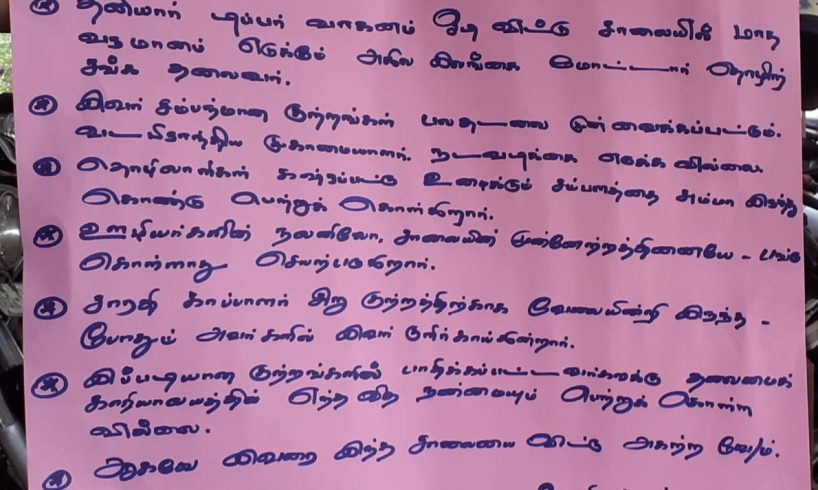 தனியார் டிப்பர் வாகனம் ஓடி விட்டு சாலையில் மாத
வருமானம் எடுக்கும் அகில இலங்கை மோட்டார் தொழிற்
சங்க தலைவர்.
இவர் சம்பந்மான குற்றங்கள் பலதடவை முன்வைக்கப்பட்டும்.
வட பிராந்திய முகாமையாளர். நடவடிக்கை எடுக்க வில்லை.
தொழிலாளிகள் கஷ்ரப்பட்டு உழைக்கும் சம்பளத்தை சும்மா இருந்து
கொண்டு பெற்றுக் கொள்கிறார்.
ஊழியர்களின் நலனிலோ, சாலையின் முன்னேற்றத்தினையே - பங்கு
கொள்ளாது செயற்படுகிறார்.
சாரதி காப்பாளர் சிறு குற்றத்திற்காக வேலையின்றி இருந்த -
போதும் அவர்களில் இவர் குளிர்காய்கின்றார்.
இப்படியான குற்றங்களில் பாதிக்கப்பட்டவர்களுக்கு தலைமைக்
காரியாலயத்தில் எந்த வித நன்மையும் பெற்றுக் கொள்ள
வில்லை.
ஆகவே இவரை இந்த சாலையை விட்டு அகற்ற வே/ம்.